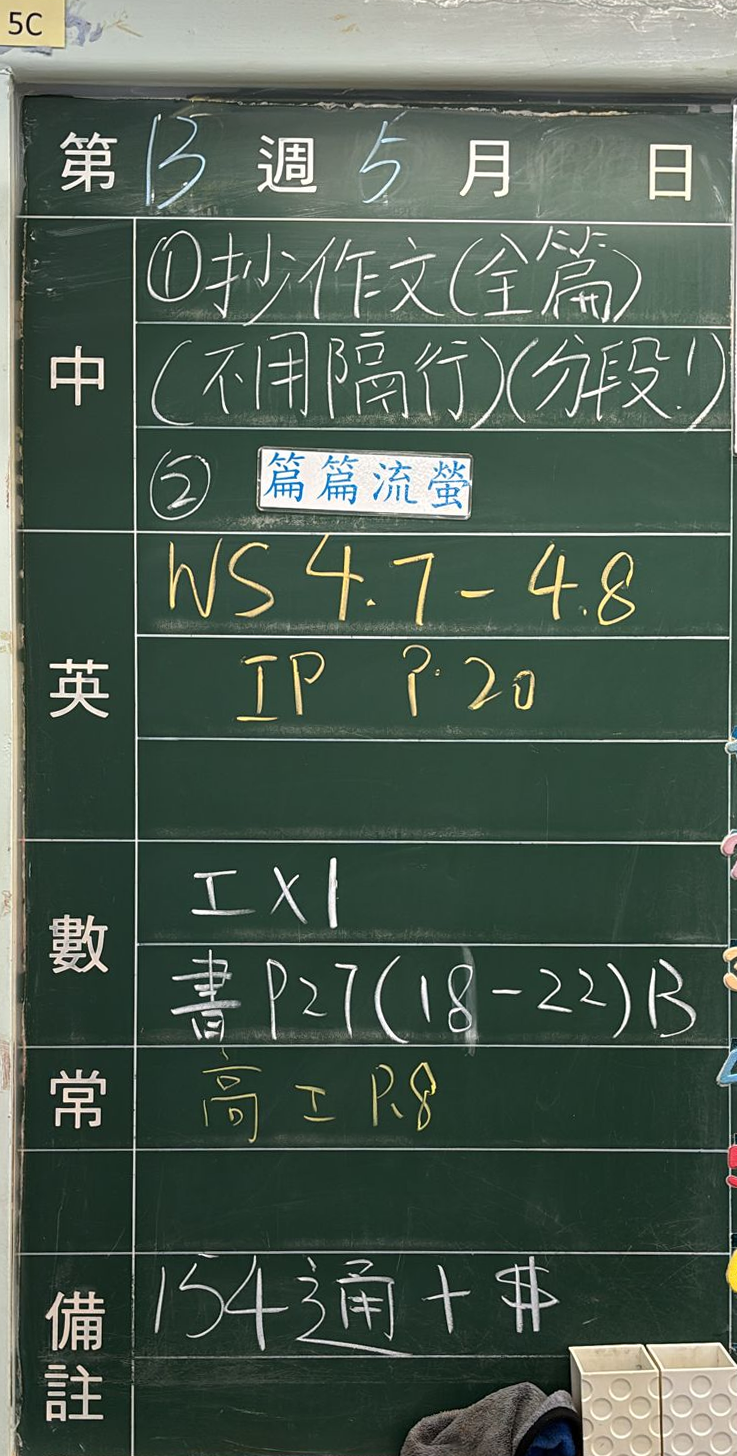 5C
第 13 週 5 月 日
中
①抄作文(全篇)
(不用隔行)(分段!)
② 篇篇流螢
英
WS 4.7-4.8
IP P.20
數
工×1
書 P27(18-22)B
常
高工 P.8
備註
154通+$